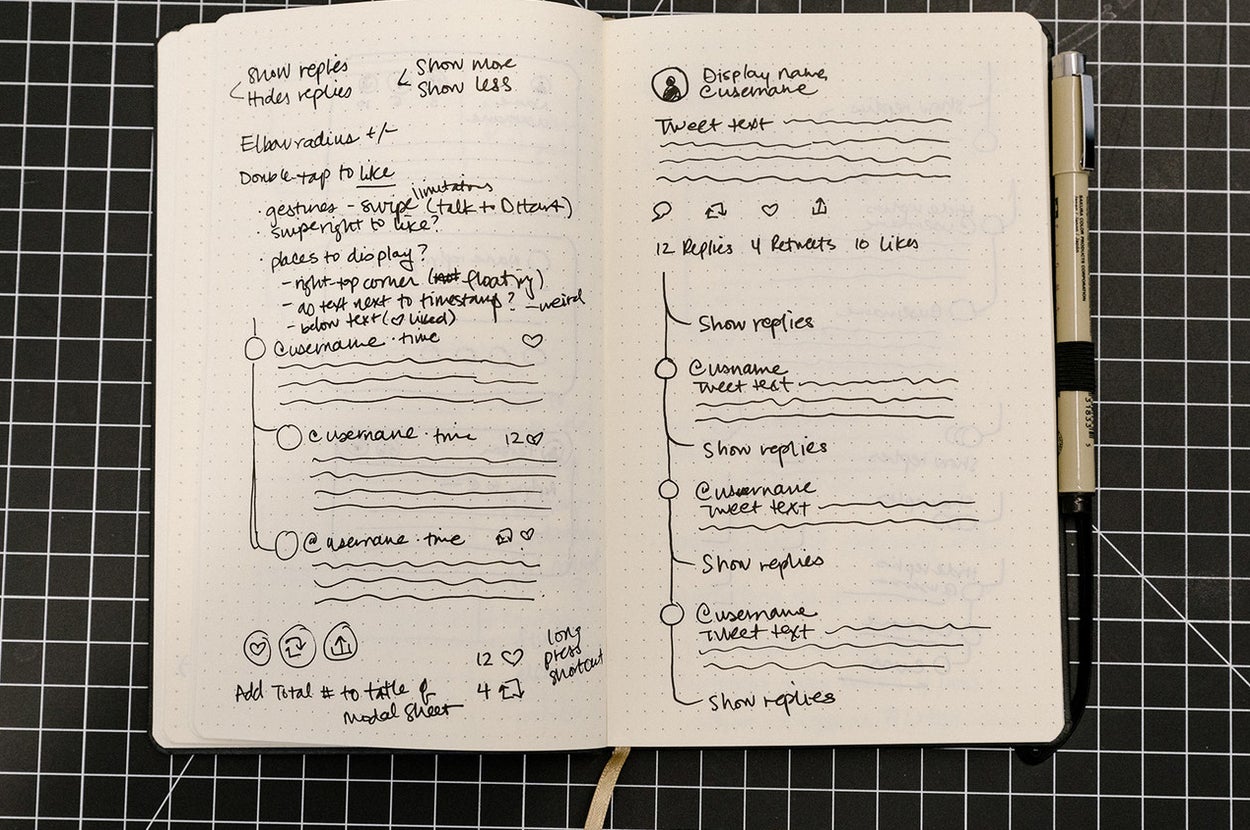 Show replies
Hides replies
Show more
Show less
Elbow radius +/-
Double-tap to like
limitations
· gestures - swipe (talk to DHart)
· swipe right to like?
· places to display?
- right-top corner (not floating)
- no text next to timestamp? - weird
- below text (♡ liked)
@username · time
@username · time 12
@username · time
long
press
shortcut
12
4
Add Total # to title of
modal sheet
Display name
@username
Tweet text
12 Replies 4 Retweets 10 Likes
Show replies
@usname
Tweet text
Show replies
@username
Tweet text
Show replies
@username
Tweet text
Show replies
SAKURA COLOR PRODUCTS CORPORATION